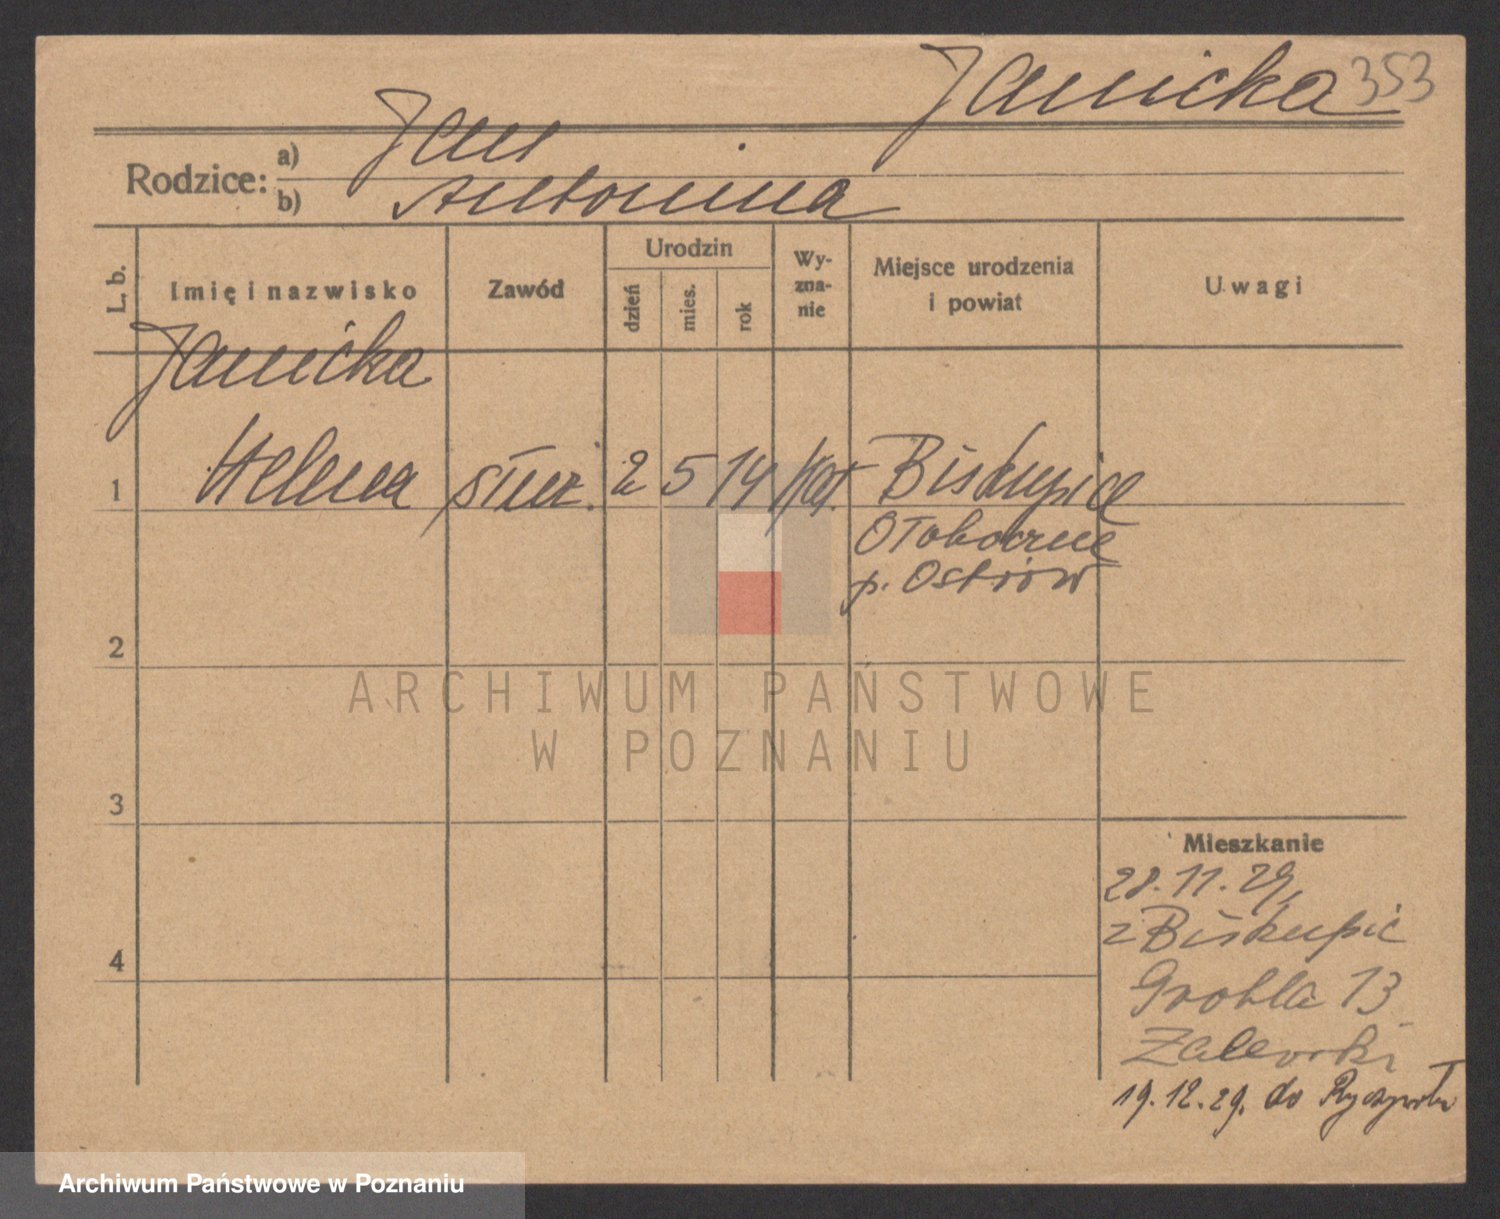 Janicka 353
Rodzice: a) Jan
b) Antonina
L. b. Imię i nazwisko Zawód Urodzin dzień mies. rok Wy-zna-nie Miejsce urodzenia i powiat Uwagi
Janicka
1 Helena służ. 2 5 14 kat. Biskupice
Ołoboczne
p. Ostrów
2
ARCHIWUM PAŃSTWOWE
W POZNANIU
3
Mieszkanie
28.11.29,
z Biskupic
4
Grobla 13
Zalewski
19.12.29. do Ryczywołu
Archiwum Państwowe w Poznaniu